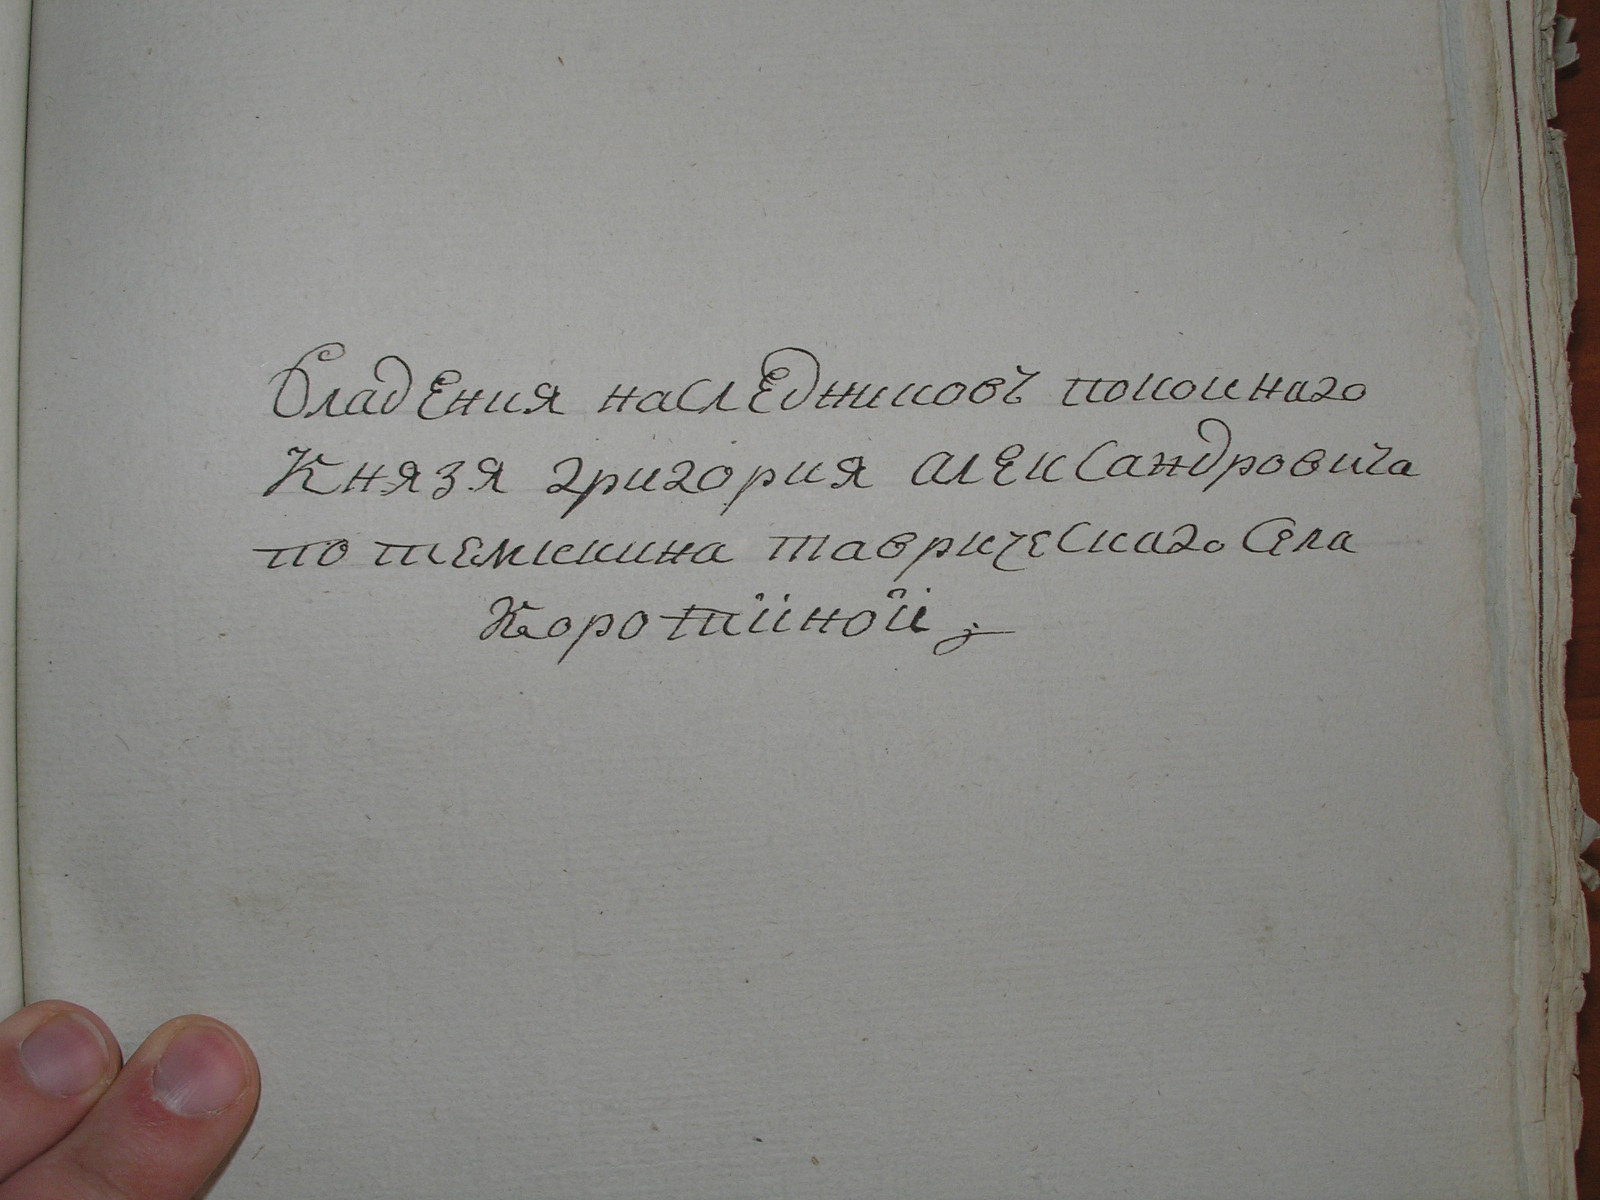 Владения наследниковъ покоинаго
Князя григория александровича
потемкина таврическаго села
Коротйной